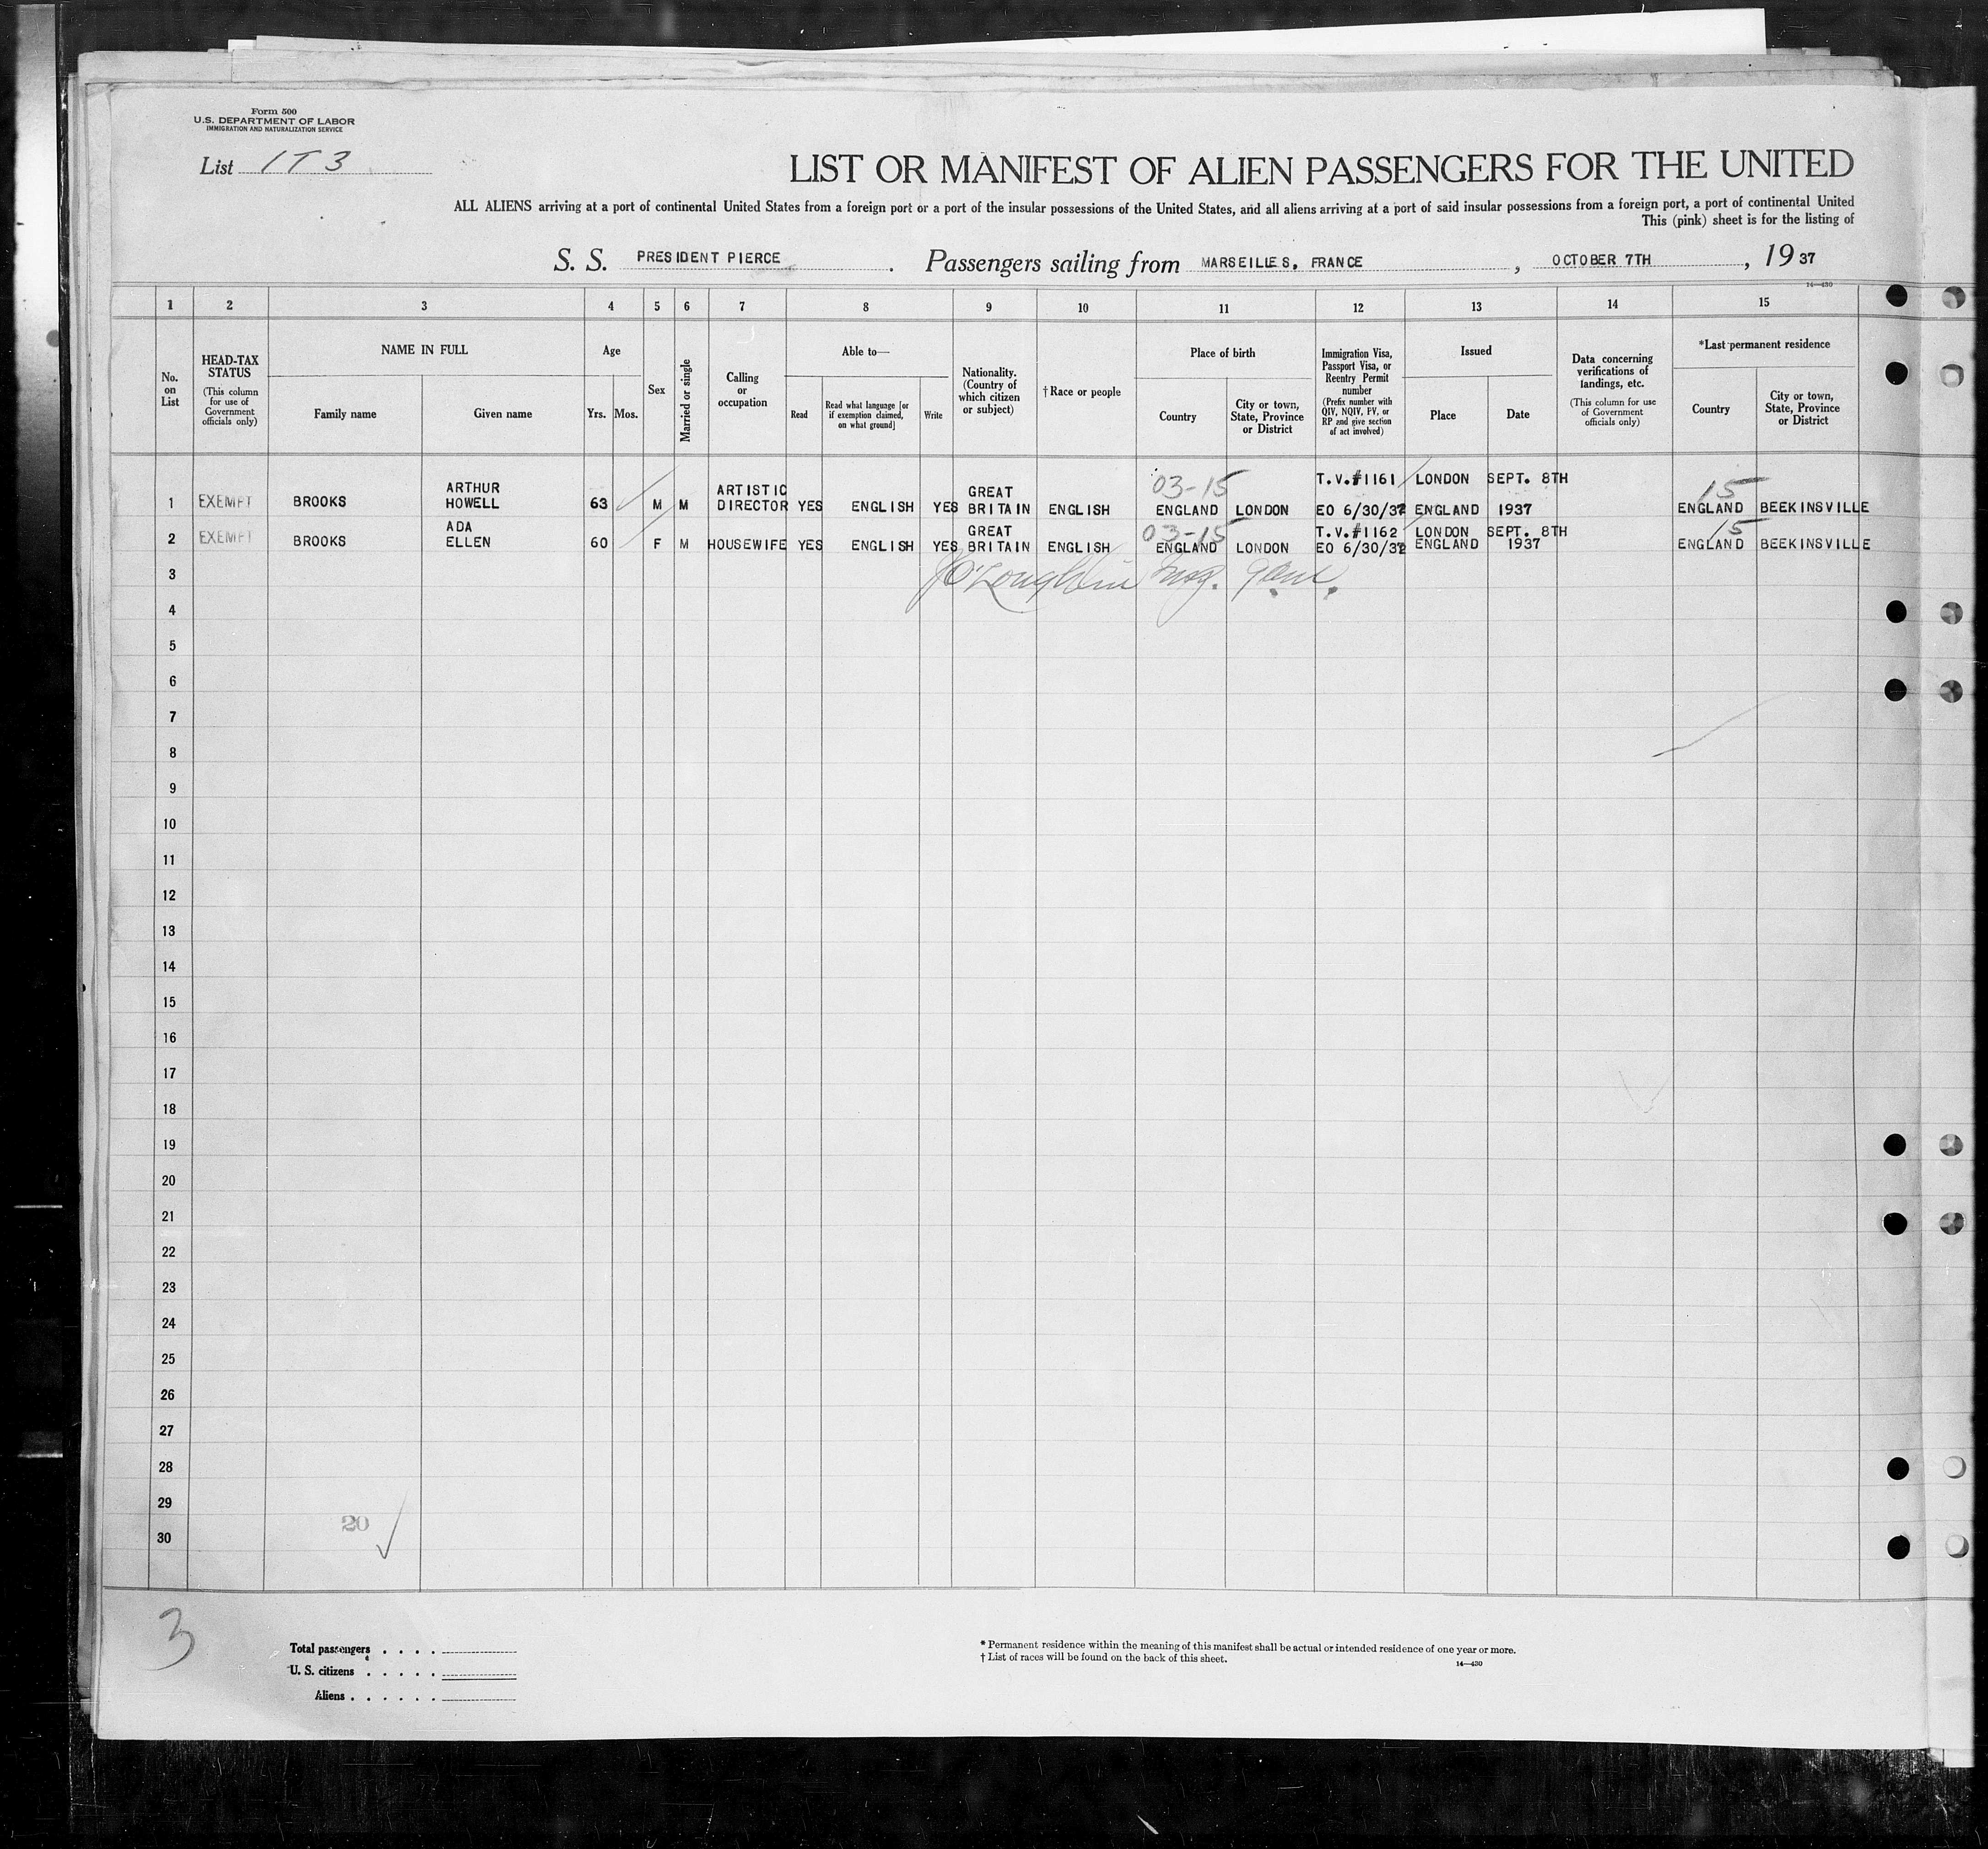 Form 500
U.S. DEPARTMENT OF LABOR
IMMIGRATION AND NATURALIZATION SERVICE
List 1 T 3
LIST OR MANIFEST OF ALIEN PASSENGERS FOR THE UNITED
ALL ALIENS arriving at a port of continental United States from a foreign port or a port of the insular possessions of the United States, and all aliens arriving at a port of said insular possessions from a foreign port, a port of continental United
This (pink) sheet is for the listing of
S. S. PRESIDENT PIERCE. Passengers sailing from MARSEILLES, FRANCE, OCTOBER 7TH, 19 37
14—430
1 2 3 4 5 6 7 8 9 10 11 12 13 14 15
No. on List
HEAD-TAX STATUS
(This column for use of Government officials only)
NAME IN FULL
Family name Given name
Age
Yrs. Mos.
Sex
Married or single
Calling or occupation
Able to—
Read
Read what language [or if exemption claimed, on what ground]
Write
Nationality. (Country of which citizen or subject)
† Race or people
Place of birth
Country
City or town, State, Province or District
Immigration Visa, Passport Visa, or Reentry Permit number
(Prefix number with QIV, NQIV, PV, or RP and give section of act involved)
Issued
Place Date
Data concerning verifications of landings, etc.
(This column for use of Government officials only)
*Last permanent residence
Country
City or town, State, Province or District
ARTHUR ARTISTIC GREAT 03-15 T.V.#1161 LONDON SEPT. 8TH 15
1 EXEMPT BROOKS HOWELL 63 M M DIRECTOR YES ENGLISH YES BRITAIN ENGLISH ENGLAND LONDON EO 6/30/32 ENGLAND 1937 ENGLAND BEEKINSVILLE
ADA GREAT 03-15 T.V.#1162 LONDON SEPT. 8TH 15
2 EXEMPT BROOKS ELLEN 60 F M HOUSEWIFE YES ENGLISH YES BRITAIN ENGLISH ENGLAND LONDON EO 6/30/32 ENGLAND 1937 ENGLAND BEEKINSVILLE
3 J O'Loughlin Insp.
4
5
6
7
8
9
10
11
12
13
14
15
16
17
18
19
20
21
22
23
24
25
26
27
28
29
20
30
3
Total passengers
U. S. citizens
Aliens
* Permanent residence within the meaning of this manifest shall be actual or intended residence of one year or more.
† List of races will be found on the back of this sheet.
14—430